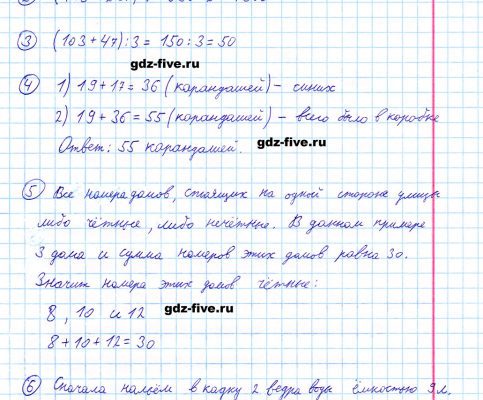 ③ (103+47):3=150:3=50
gdz-five.ru
④ 1) 19+17=36 (карандашей) – синих
2) 19+36=55 (карандашей) – всего было в коробке
Ответ: 55 карандашей.
gdz-five.ru
⑤ Все номера домов, стоящих на одной стороне улицы
либо чётные, либо нечётные. В данном примере
3 дома и сумма номеров этих домов равна 30.
Значит номера этих домов чётные:
8, 10 и 12
gdz-five.ru
8+10+12=30
⑥ Сначала нальём в кадку 2 ведра воды ёмкостью 9 л.